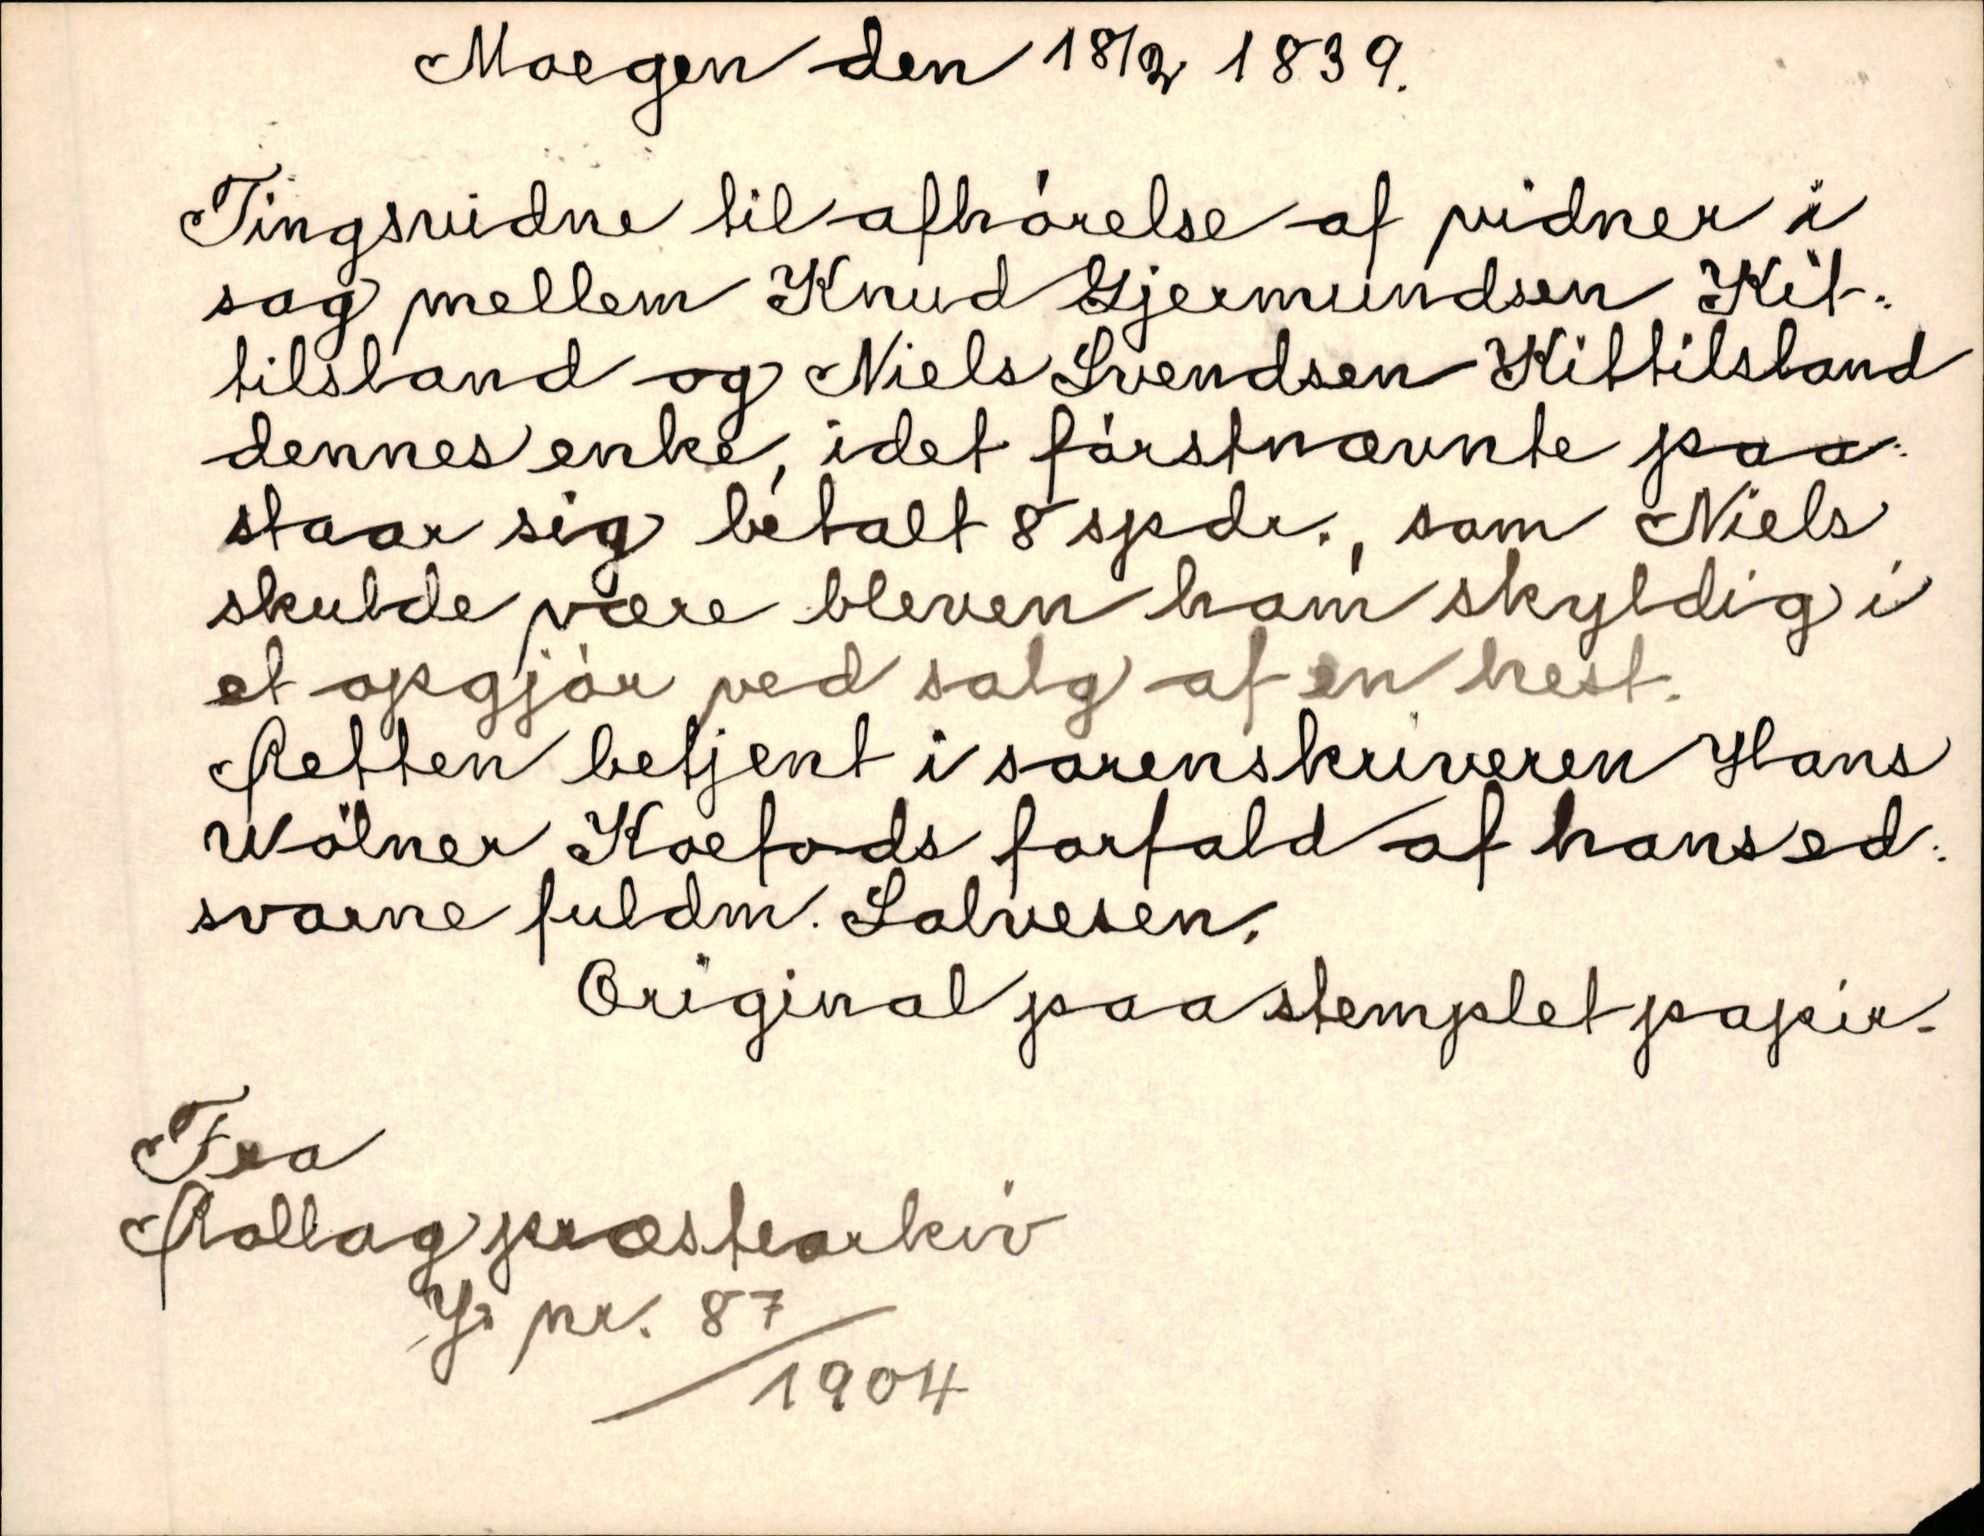 Moegen den 18/2 1839.
Tingsvidne til afhórelse af vidner i
sag mellem Knud Gjermundsen Kit-
tilsland og Niels Svendsen Kittilsland
dennes enke, idet fórstnævnte paa-
staar sig betalt 8 spdr., som Niels
skulde være bleven ham skyldig i
et opgjór ved salg af en hest.
Retten betjent i sorenskriveren Hans
Wölner Koefods forfald af hans ed-
svorne fuldm. Salvesen.
Original paa stemplet papir.
Fra
Rollag præstearkiv
J. nr. 87/1904